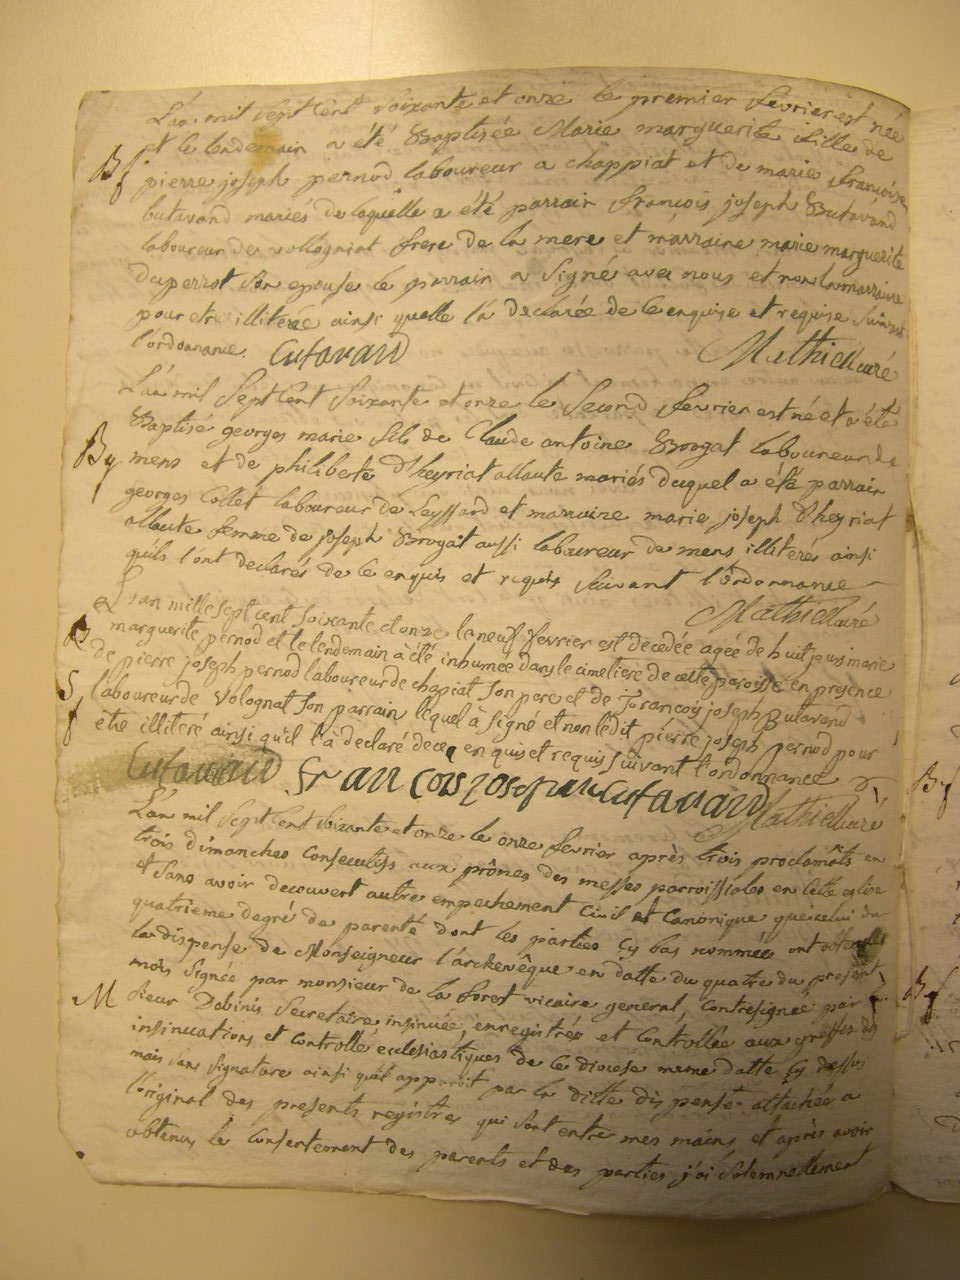 L'an mil sept cent soixante et onze le premier fevrier est née
et le lendemain a été Baptisée Marie marguerite fille de
Bf
pierre joseph pernod laboureur a chappiat et de marie françoise
butavand mariés de laquelle a été parrain françois joseph Butavand
laboureur de vollognat frere de la mere et marraine marie marguerite
Duperrot son epouse le parrain a signé avec nous et non la marraine
pour etre illiterée ainsi quelle la declarée de ce enquise et requise suivant
l'ordonnance. Cutavand Mathieu curé
L'an mil sept cent soixante et onze le second fevrier est né et a été
Baptisé georges marie fils de Claude antoine Brogat laboureur de
By
mens et de philiberte D'heyriat alloute mariés duquel a été parrain
georges Collet laboureur de Leyssard et marraine marie joseph D'heyriat
alloute femme de joseph Brogat aussi laboureur de mens illiterés ainsi
quils l'ont declarés de ce enquis et requis suivant l'ordonnance
Mathieu curé
L'an mille sept cent soixante et onze le neuf fevrier est decedée agée de huit jours marie
marguerite pernod et le lendemain a été inhumée dans le cimetiere de cette paroisse en presence
de pierre joseph pernod laboureur de chapiat son pere et de francois joseph Butavand
S f
laboureur de volognat son parrain lequel à signé et non ledit pierre joseph pernod pour
etre illiteré ainsi qu'il l'à declaré de ce enquis et requis suivant l'ordonnance
Cutavand francois joseph Cutavand Mathieu curé
L'an mil sept cent soixante et onze le onze fevrier après trois proclamats en
trois dimanches consecutifs aux prônes des messes parroissiales en cette eglise
et sans avoir decouvert autre empechement civil et canonique que celui du
quatrieme degré de parenté dont les parties cy bas nommées ont obtenues
la dispense de Monseigneur l'archevêque en datte du quatre du present
mois signée par monsieur de la forest vicaire general, contresignée par le
M
sieur Dobinis secretaire insinuée, enregistrée et controllée aux greffes des
insinuations et controlle ecclesiastiques de ce diocese meme datte cy dessus
mais sans signature ainsi quil apparoit par la ditte dispense attachée a
l'original des presents registres qui sont entre mes mains et après avoir
obtenu le consentement des parents et des parties j'ai solemnellement